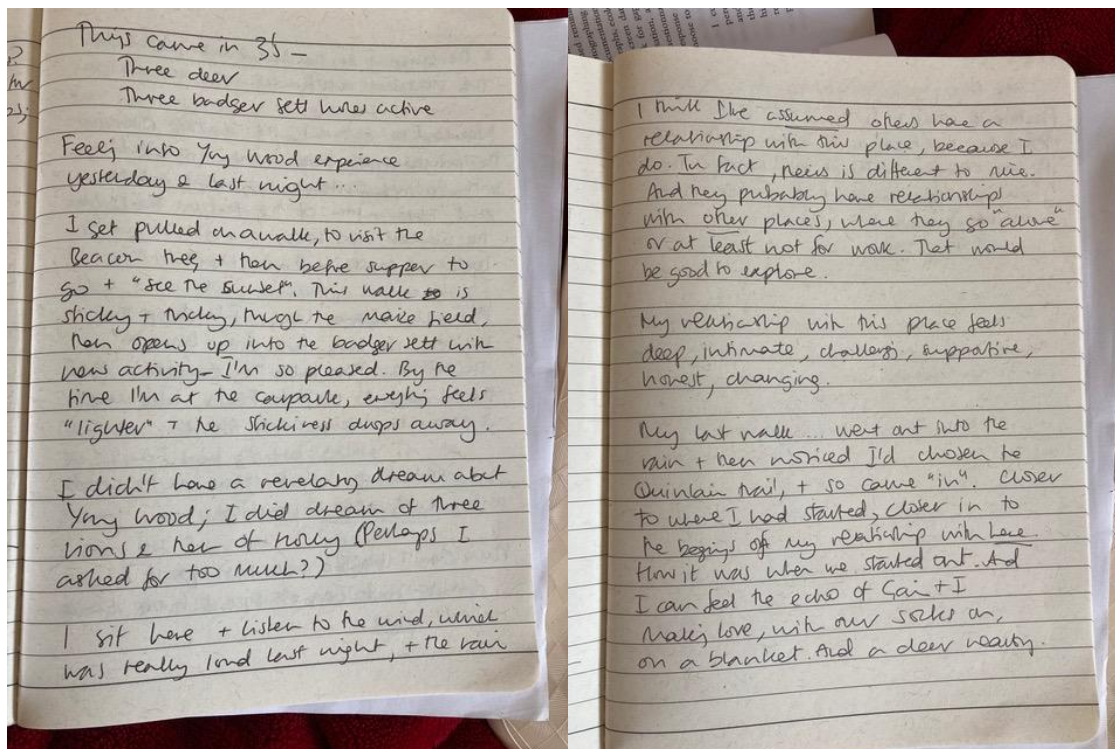 Things came in 3's –
Three deer
Three badger sett holes active
Feeling into Yng Wood experience
yesterday & last night...
I get pulled on a walk, to visit the
Beacon tree, + then before supper to
go + "see the sunset". This walk is
sticky + tricky, through the maize field,
then opens up into the badger sett with
new activity – I'm so pleased. By the
time I'm at the carpark, everything feels
"lighter" + the stickiness drops away.
I didn't have a revelatory dream about
Yng Wood; I did dream of three
lions & then of (Perhaps I
asked for too much?)
I sit here + listen to the wind, which
was really loud last night, + the rain
I think I've assumed others have a
relationship with this place, because I
do. In fact, theirs is different to mine.
And they probably have relationships
with other places, where they go "alone"
or at least not for work. That would
be good to explore.
My relationship with this place feels
deep, intimate, challenging, supportive,
honest, changing.
My last walk... went out into the
rain + then noticed I'd chosen the
Quinlain trail, + so came "in". Closer
to where I had started, closer in to
the beginnings of my relationship with here
How it was when we started out. And
I can feel the echo of + I
making love, with our socks on,
on a blanket. And a deer nearby.